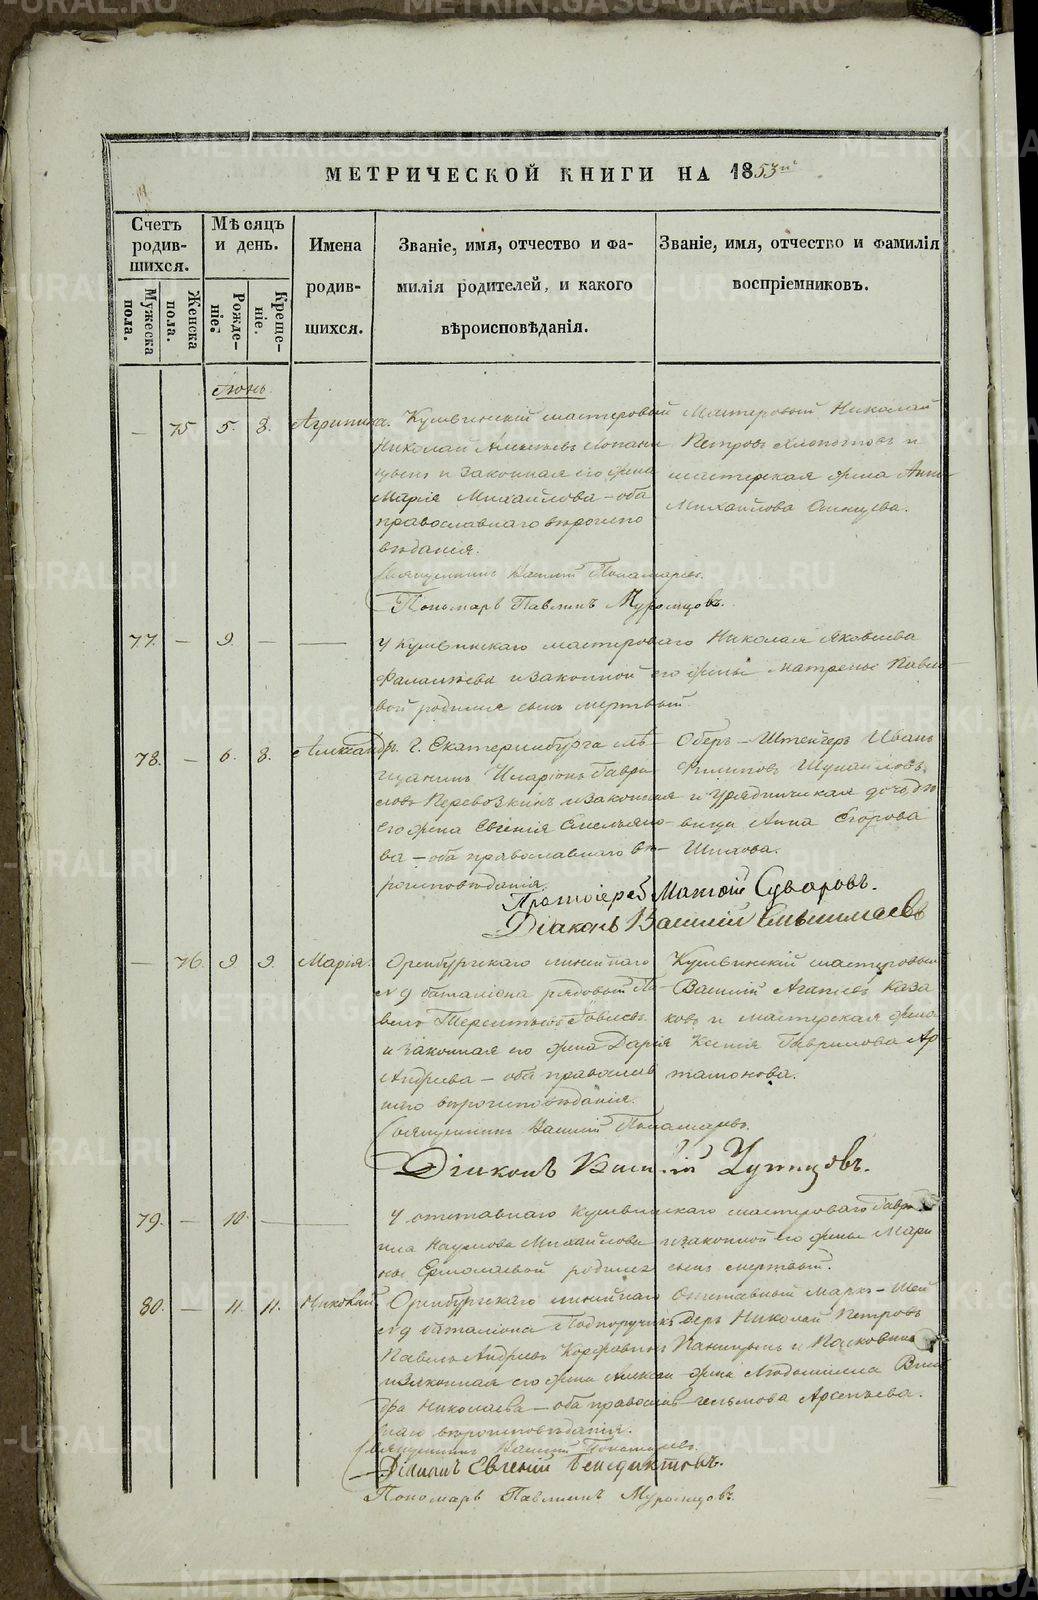 МЕТРИЧЕСКОЙ КНИГИ НА 1853й
Счетъ родив-шихся.
Мужеска пола.
Женска пола.
Мѣсяцъ и день.
Рожде-ніе.
Креще-ніе.
Имена родив-шихся.
Званіе, имя, отчество и фа-
милія родителей, и какого
вѣроисповѣданія.
Званіе, имя, отчество и фамилія
воспріемниковъ.
Іюнь.
— 75 5. 8. Агрипина. Кушвинскій мастеровой
Николай
и законная его жена
Марія Михайлова — оба
православнаго вѣроиспо
вѣданія.
Мастеровый Николай
Петровъ и
мастерская жена Анна
Михайлова
Священникъ Василій Пономаревъ.
Пономарь Павлинъ Муромцовъ.
77. — 9. — — У Кушвинскаго мастероваго Николая Яковлева
и законной его жены Матрены Павло-
вой родился сынъ мертвый.
78. — 6. 8. Александръ. Г. Екатеринбурга мѣ-
щанинъ Иларіонъ Гаври
ловъ Перевозкинъ и законная
его жена Евгенія Емельяно-
ва — оба православнаго вѣ-
роисповѣданія.
Оберъ-Штейгеръ Иванъ
Филиповъ
и Урядничская дочь дѣ
вица Анна Егорова
Протоіерей Матвій Суворовъ.
Діаконъ Василій
— 76. 9 9. Марія. Оренбургскаго линейнаго
№ 9 баталіона рядовый Па-
велъ Терентьевъ
и законная его жена Дарья
Андреева — оба православ
наго вѣроисповѣданія.
Кушвинскій мастеровый
Василій Агапіевъ Каза
ковъ и мастерская жена
Ксенія Гаврилова Ар-
тамонова.
Священникъ Василій Пономаревъ.
Діаконъ Василій
79. — 10. — — У отставнаго Кушвинскаго мастероваго Гаври
ила Наумова Михайлова и законной его жены Мари
ны Ермолаевой родился сынъ мертвый.
80. — 11. 11. Николай. Оренбургскаго линейнаго
№ 9 баталіона Подпоручикъ
Павелъ Андреевъ
и законная его жена Алексан
дра Николаева — оба православ
наго вѣроисповѣданія.
Отставный Маркъ-Шей
деръ Николай Петровъ
и
жена Людмилла Виль
гельмова Арсеньева.
Священникъ Василій Пономаревъ.
Діаконъ Евгеній Бенедиктовъ.
Пономарь Павлинъ Муромцовъ.